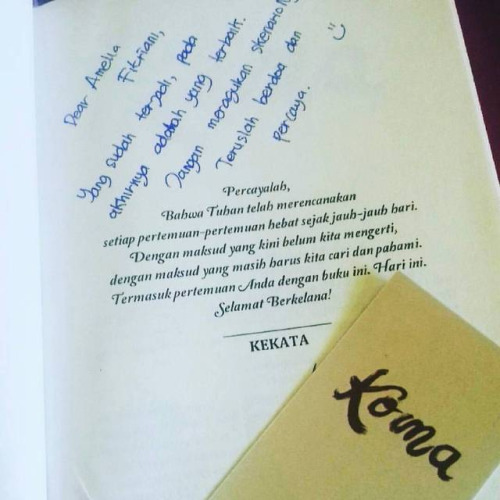 Dear Amelia
Fitriani,
Yang sudah terjadi, pada
akhirnya adalah yang terbaik.
Jangan meragukan skenario
Teruslah berdoa dan
percaya.
Percayalah,
Bahwa Tuhan telah merencanakan
setiap pertemuan-pertemuan hebat sejak jauh-jauh hari.
Dengan maksud yang kini belum kita mengerti,
dengan maksud yang masih harus kita cari dan pahami.
Termasuk pertemuan Anda dengan buku ini. Hari ini.
Selamat Berkelana!
KEKATA
Koma